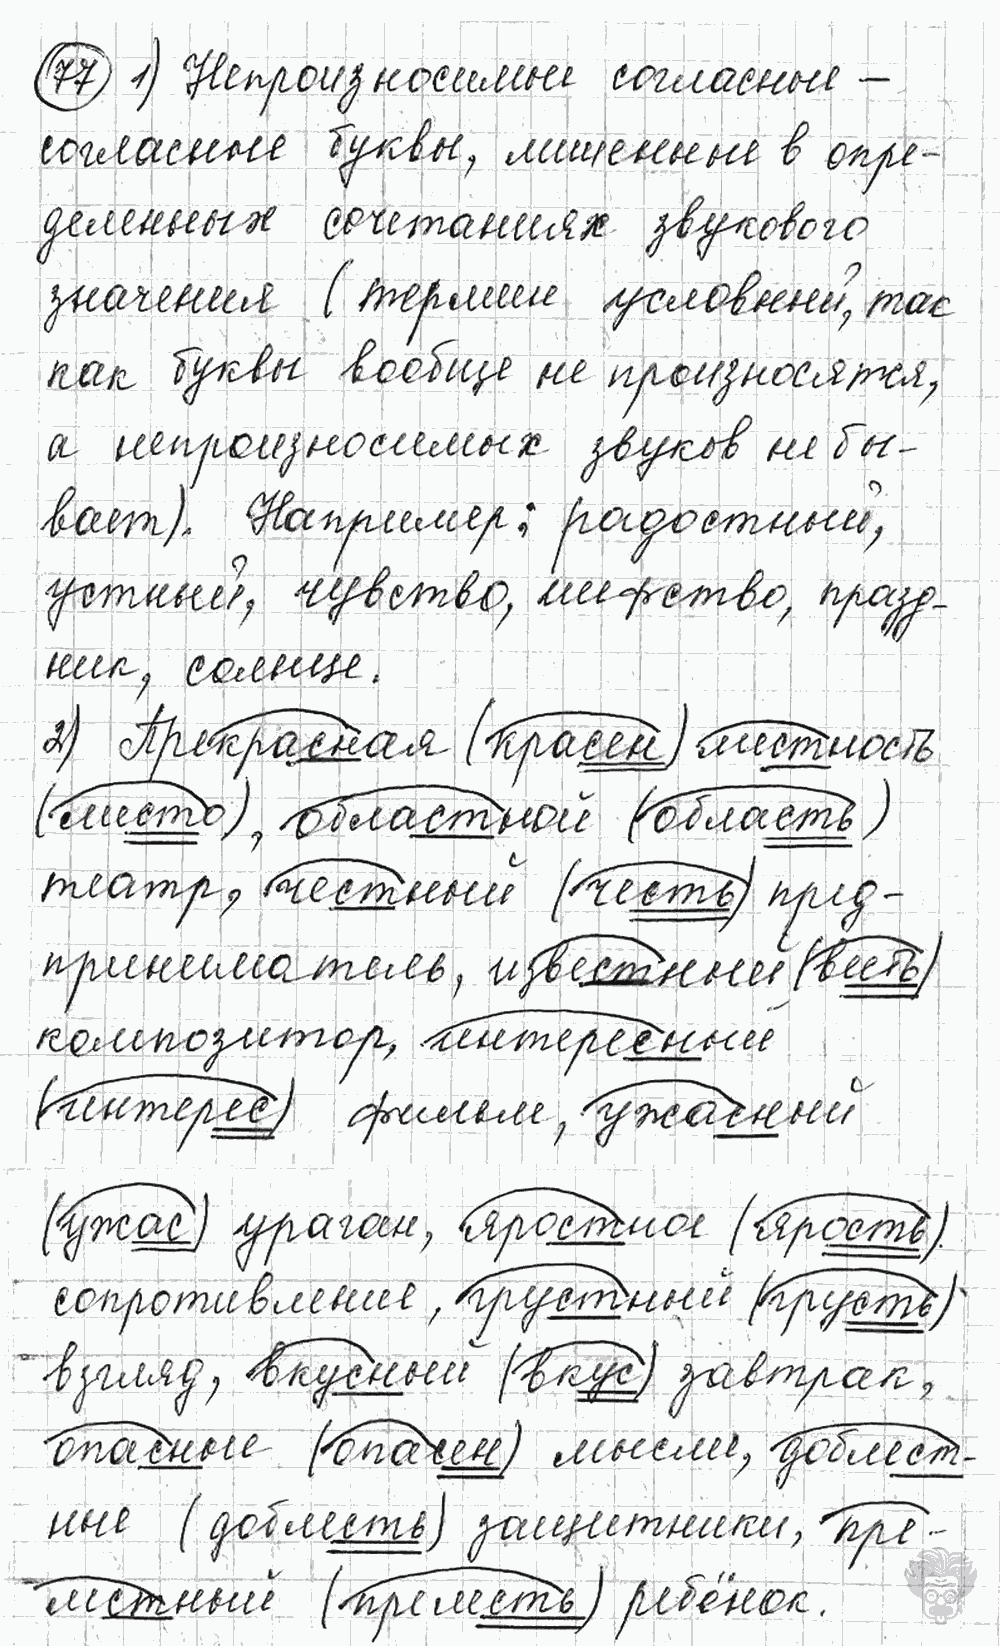 77 1) Непроизносимые согласные —
согласные буквы, лишенные в опре-
деленных сочетаниях звукового
значения (термин условный, так
как буквы вообще не произносятся,
а непроизносимых звуков не бы-
вает). Например: радостный,
устный, чувство, шефство, празд-
ник, солнце.
2) Прекрасная (красен) местность
(место), областной (область)
театр, честный (честь) пред-
приниматель, известный (весть)
композитор, интересный
(интерес) фильм, ужасный
(ужас) ураган, яростное (ярость)
сопротивление, грустный (грусть)
взгляд, вкусный (вкус) завтрак,
опасные (опасен) мысли, доблест-
ные (доблесть) защитники, пре-
лестный (прелесть) ребёнок.